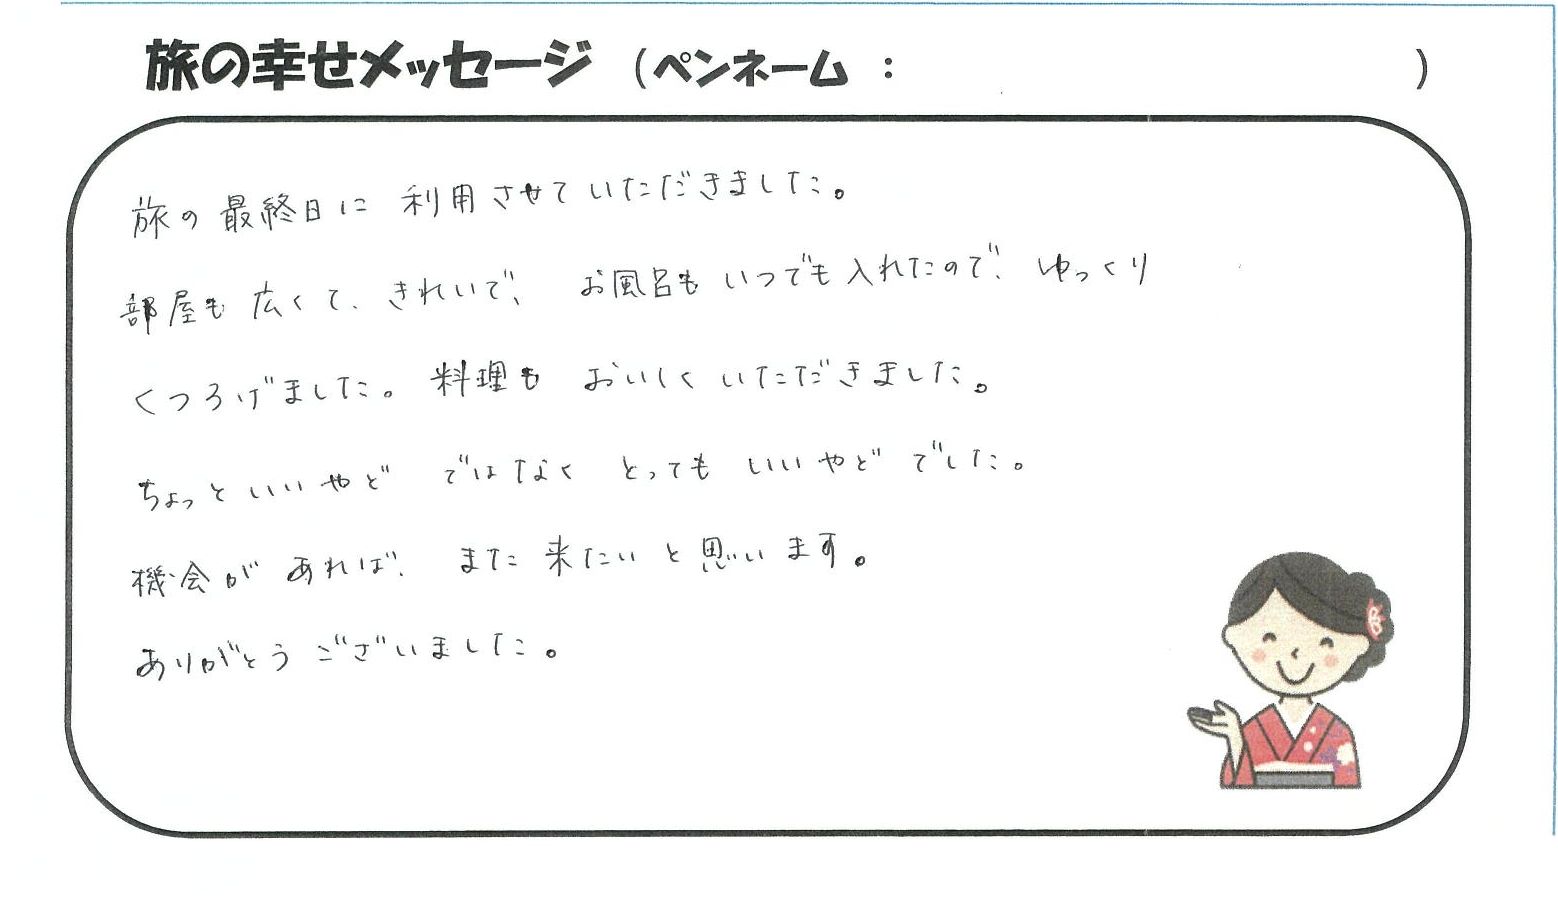 旅の幸せメッセージ（ペンネーム：　　　　　）
旅の最終日に利用させていただきました。
部屋も広くて、きれいで、お風呂もいつでも入れたので、ゆっくり
くつろげました。料理もおいしくいただきました。
ちょっといいやどではなくとってもいいやどでした。
機会があれば、また来たいと思います。
ありがとうございました。